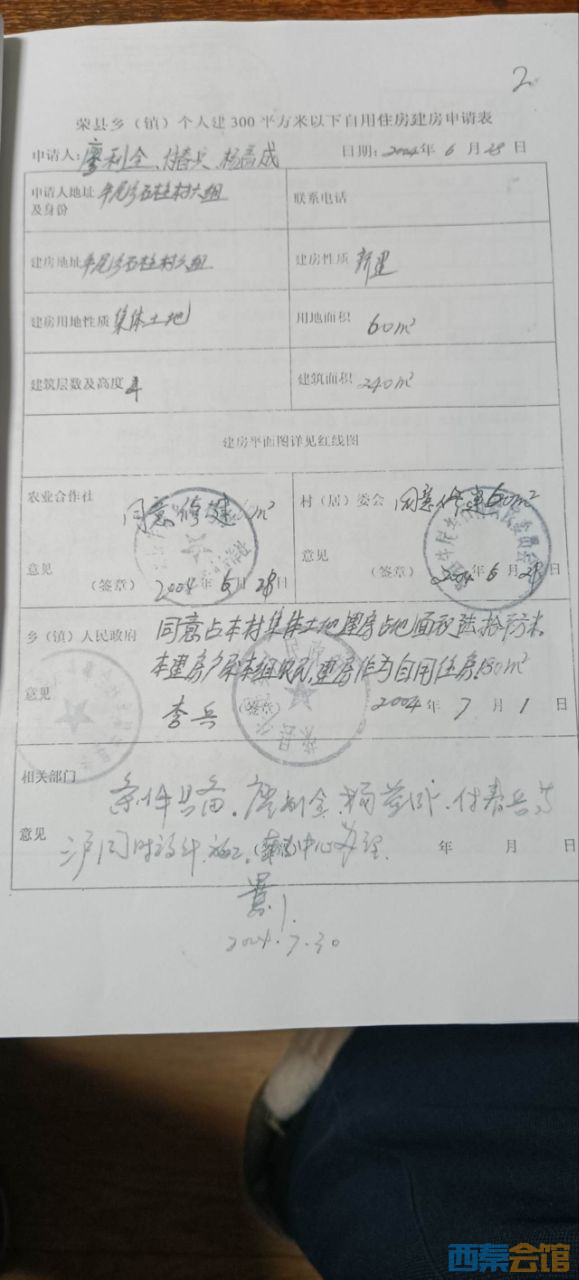 2
荣县乡（镇）个人建300平方米以下自用住房建房申请表
申请人：廖利全、付春兵、杨 成 日期：2004年6月28日
申请人地址及身份 石柱村六组 联系电话
建房地址 石柱村六组 建房性质 新建
建房用地性质 集体土地 用地面积 60m²
建筑层数及高度 4 建筑面积 240m²
建房平面图详见红线图
农业合作社 同意修建 m² 村（居）委会 同意修建60m²
意见 （签章） 2004年6月28日 意见 （签章） 2004年6月28日
乡（镇）人民政府 同意占本村集体土地建房占地面积陆拾平方米,
本建房户系本组农民,建房作为自用住房
意见 李兵 （签章） 2004年7月1日
相关部门 条件具备。廖利全、杨 、付春兵等
意见 三户同时设计、施工。 中心办理. 年 月 日
2004.7.30
西秦会馆